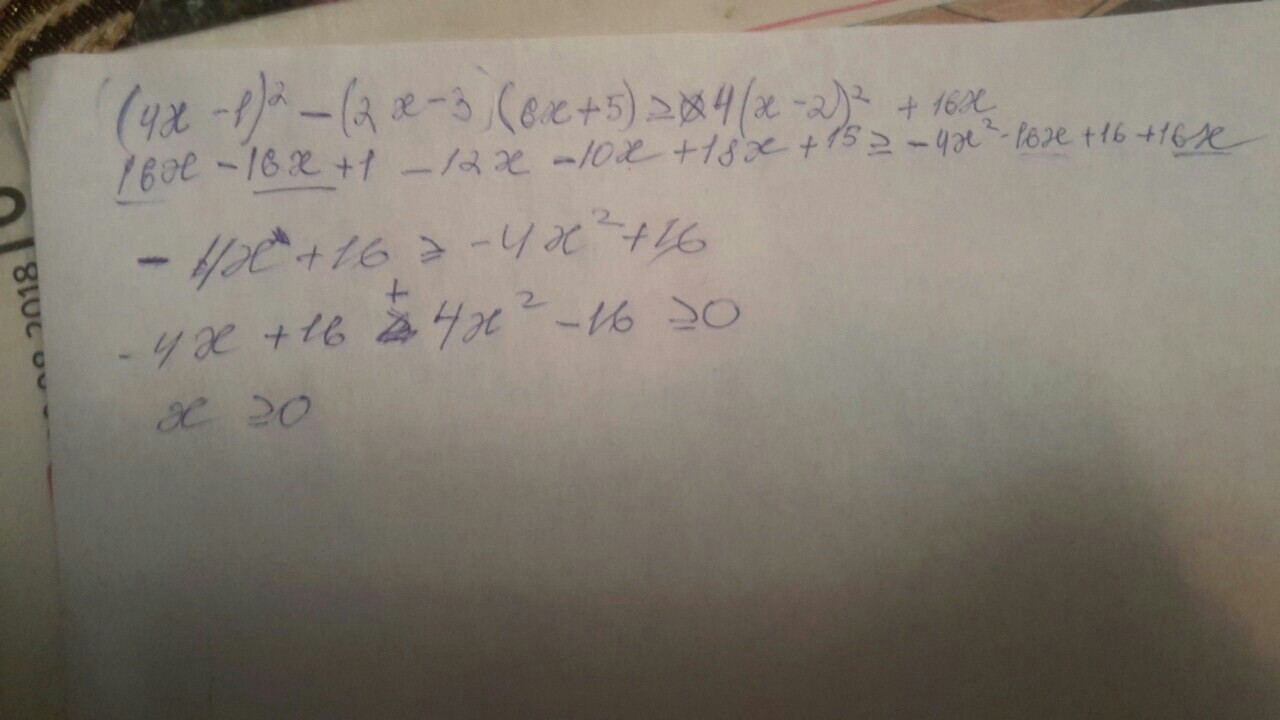 (4x - 1)² - (2x - 3)(6x + 5) ≥ 4(x - 2)² + 16x
16x - 16x + 1 - 12x - 10x + 18x + 15 ≥ - 4x² - 16x + 16 + 16x
- 4x + 16 ≥ - 4x² + 16
- 4x + 16 + 4x² - 16 ≥ 0
x ≥ 0
2018